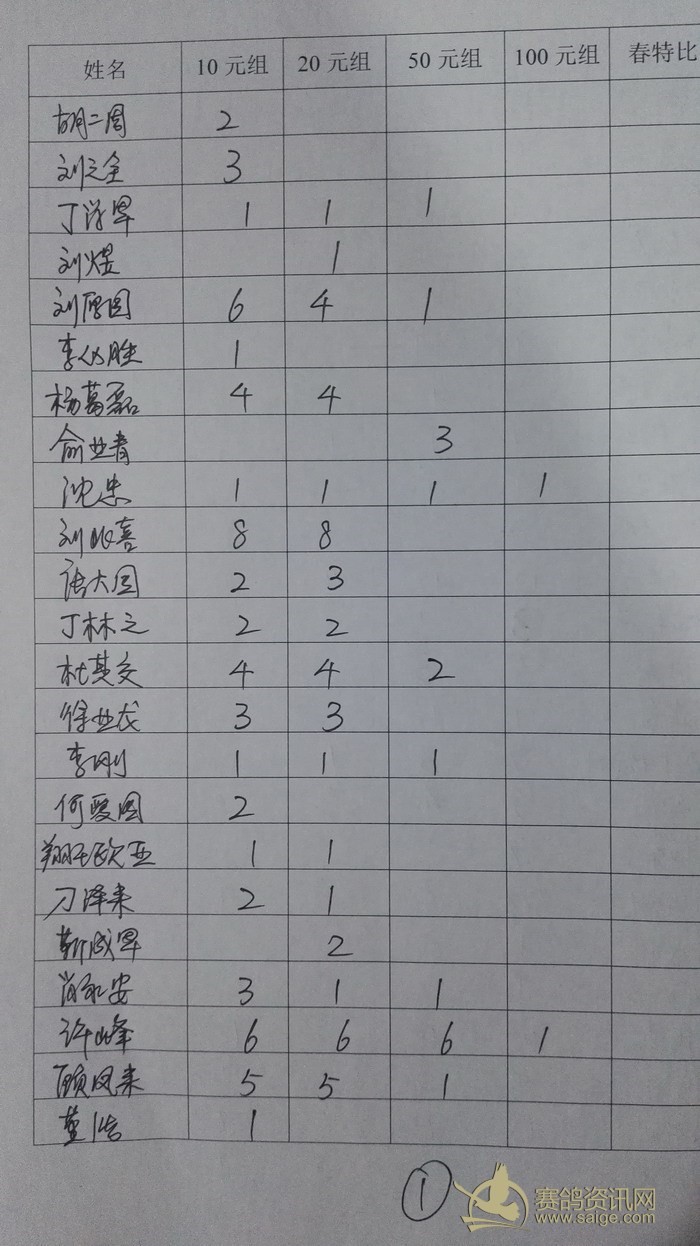 姓名 10元组 20元组 50元组 100元组 春特比
胡二周 2
刘之全 3
丁学早 1 1 1
刘煜 1
刘厚国 6 4 1
李从胜 1
杨葛磊 4 4
俞业青 3
沈忠 1 1 1 1
刘兆喜 8 8
唐大国 2 3
丁林之 2 2
杜英交 4 4 2
徐业龙 3 3
李刚 1 1 1
何爱国 2
翔飞欧亚 1 1
刁泽来 2 1
靳成早 2
肖永安 3 1 1
许峰 6 6 6 1
顾凤来 5 5 1
董浩 1
①
赛鸽资讯网
www.saige.com